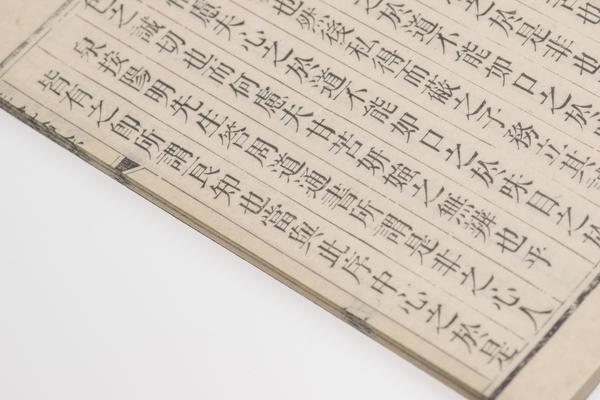 也
之於是非也
之於道不能如口之於
也然後私得而蔽之子務立其誠
惟慮夫心之於道不能如口之於味目之於
色之誠切也而何慮夫甘苦妍媸之無辨也乎
泉按陽明先生答周道通書所謂是非之心人
皆有之即所謂良知也當與此序中心之於是